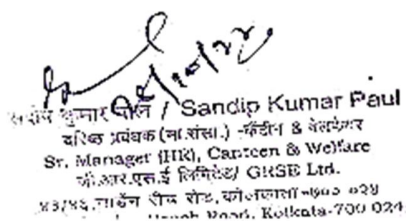 संदीप कुमार पॉल / Sandip Kumar Paul
वरिष्ठ प्रबंधक (मा.संसा.) -कैंटीन & वेलफेयर
Sr. Manager (HR), Canteen & Welfare
जी.आर.एस.ई लिमिटेड/ GRSE Ltd.
४३/४६, गार्डेन रीच रोड, कोलकाता-७०० ०२४
Reach Road, Kolkata-700 024